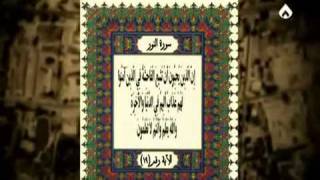 سورة النور
إن الذين يحبون أن تشيع الفاحشة في الذين آمنوا
لهم عذاب أليم في الدنيا والآخرة
والله يعلم وأنتم لا تعلمون
الآية رقم (١٩)